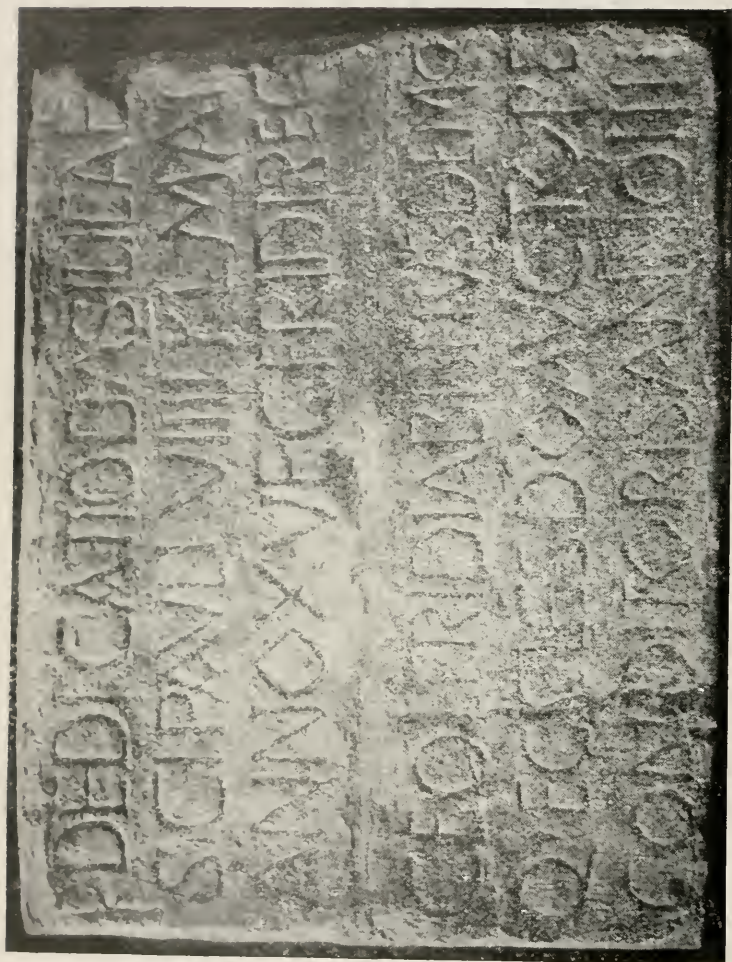 DEDICATIO BASILICAE
SCI PAVLI VIIII KL MAI
ANNO XV ECFRIDI REG
CEOLFRIDI ABB EIVSDEMQ
Q ECCLES DO AVCTORE
CONDITORIS ANNO IIII